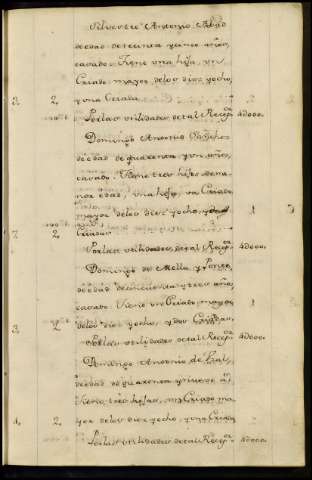 Silvestre Antonio Abad
de edad de treinta y cinco años,
casado. Tiene una hija, un
Criado mayor de los diez y ocho,
3 2 y una Criada
Por las utilidades de tal Recep.or 4000.
Domingo Antonio
de edad de quarenta y un años,
casado. Tiene tres hijos de me
nor edad, una hija, un Criado
mayor de los diez y ocho, y dos 1 3
7 2 Criadas
Por las utilidades de tal Recep.or 4000.
Domingo de Mella y Ponte,
de edad de cinquenta y tres años,
casado. Tiene un Criado mayor 1
de los diez y ocho, y dos Criadas.
3 2 Por las utilidades de tal Recep.or 4000.
Domingo Antonio de
de edad de quarenta y cinco añ.s
tiene tres hijas, un Criado ma
4 2 yor de los diez y ocho, y una Criada
Por las utilidades de tal Recep.or 4000.